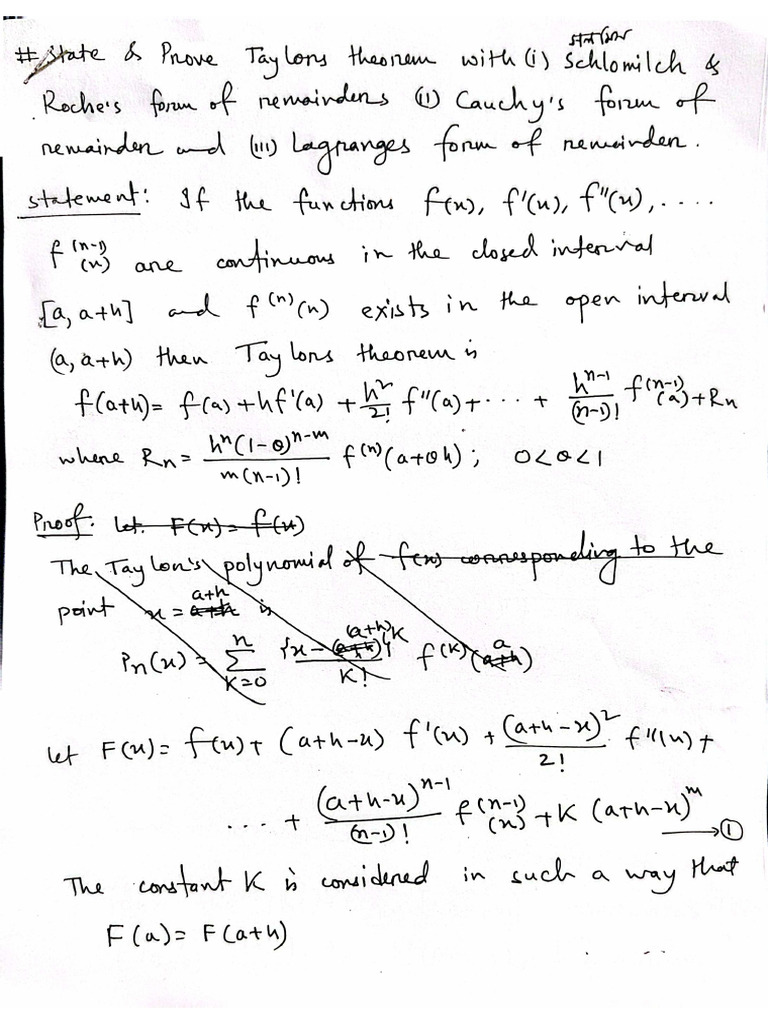 # State & Prove Taylors theorem with (i) Schlomilch &
Roche's form of remainders (ii) Cauchy's form of
remainder and (iii) Lagranges form of remainder.
statement: If the functions f(x), f'(x), f''(x), ....
f^(n-1)(x) are continuous in the closed interval
[a, a+h] and f^(n)(x) exists in the open interval
(a, a+h) then Taylors theorem is
f(a+h) = f(a) + hf'(a) + h²/2! f''(a) + ... + h^(n-1)/(n-1)! f^(n-1)(a) + Rn
where Rn = h^n(1-θ)^(n-m)/m(n-1)! f^(n)(a+θh); 0<θ<1
Proof: let. F(x) = f(x)
The Taylor's polynomial of f(x) corresponding to the
point x = a+h is
Pn(x) = Σ_{K=0}^{n} {x-(a+h)}^K/K! f^(K)(a)
let F(x) = f(x) + (a+h-x) f'(x) + (a+h-x)²/2! f''(x) +
... + (a+h-x)^(n-1)/(n-1)! f^(n-1)(x) + K (a+h-x)^m → ①
The constant K is considered in such a way that
F(a) = F(a+h)